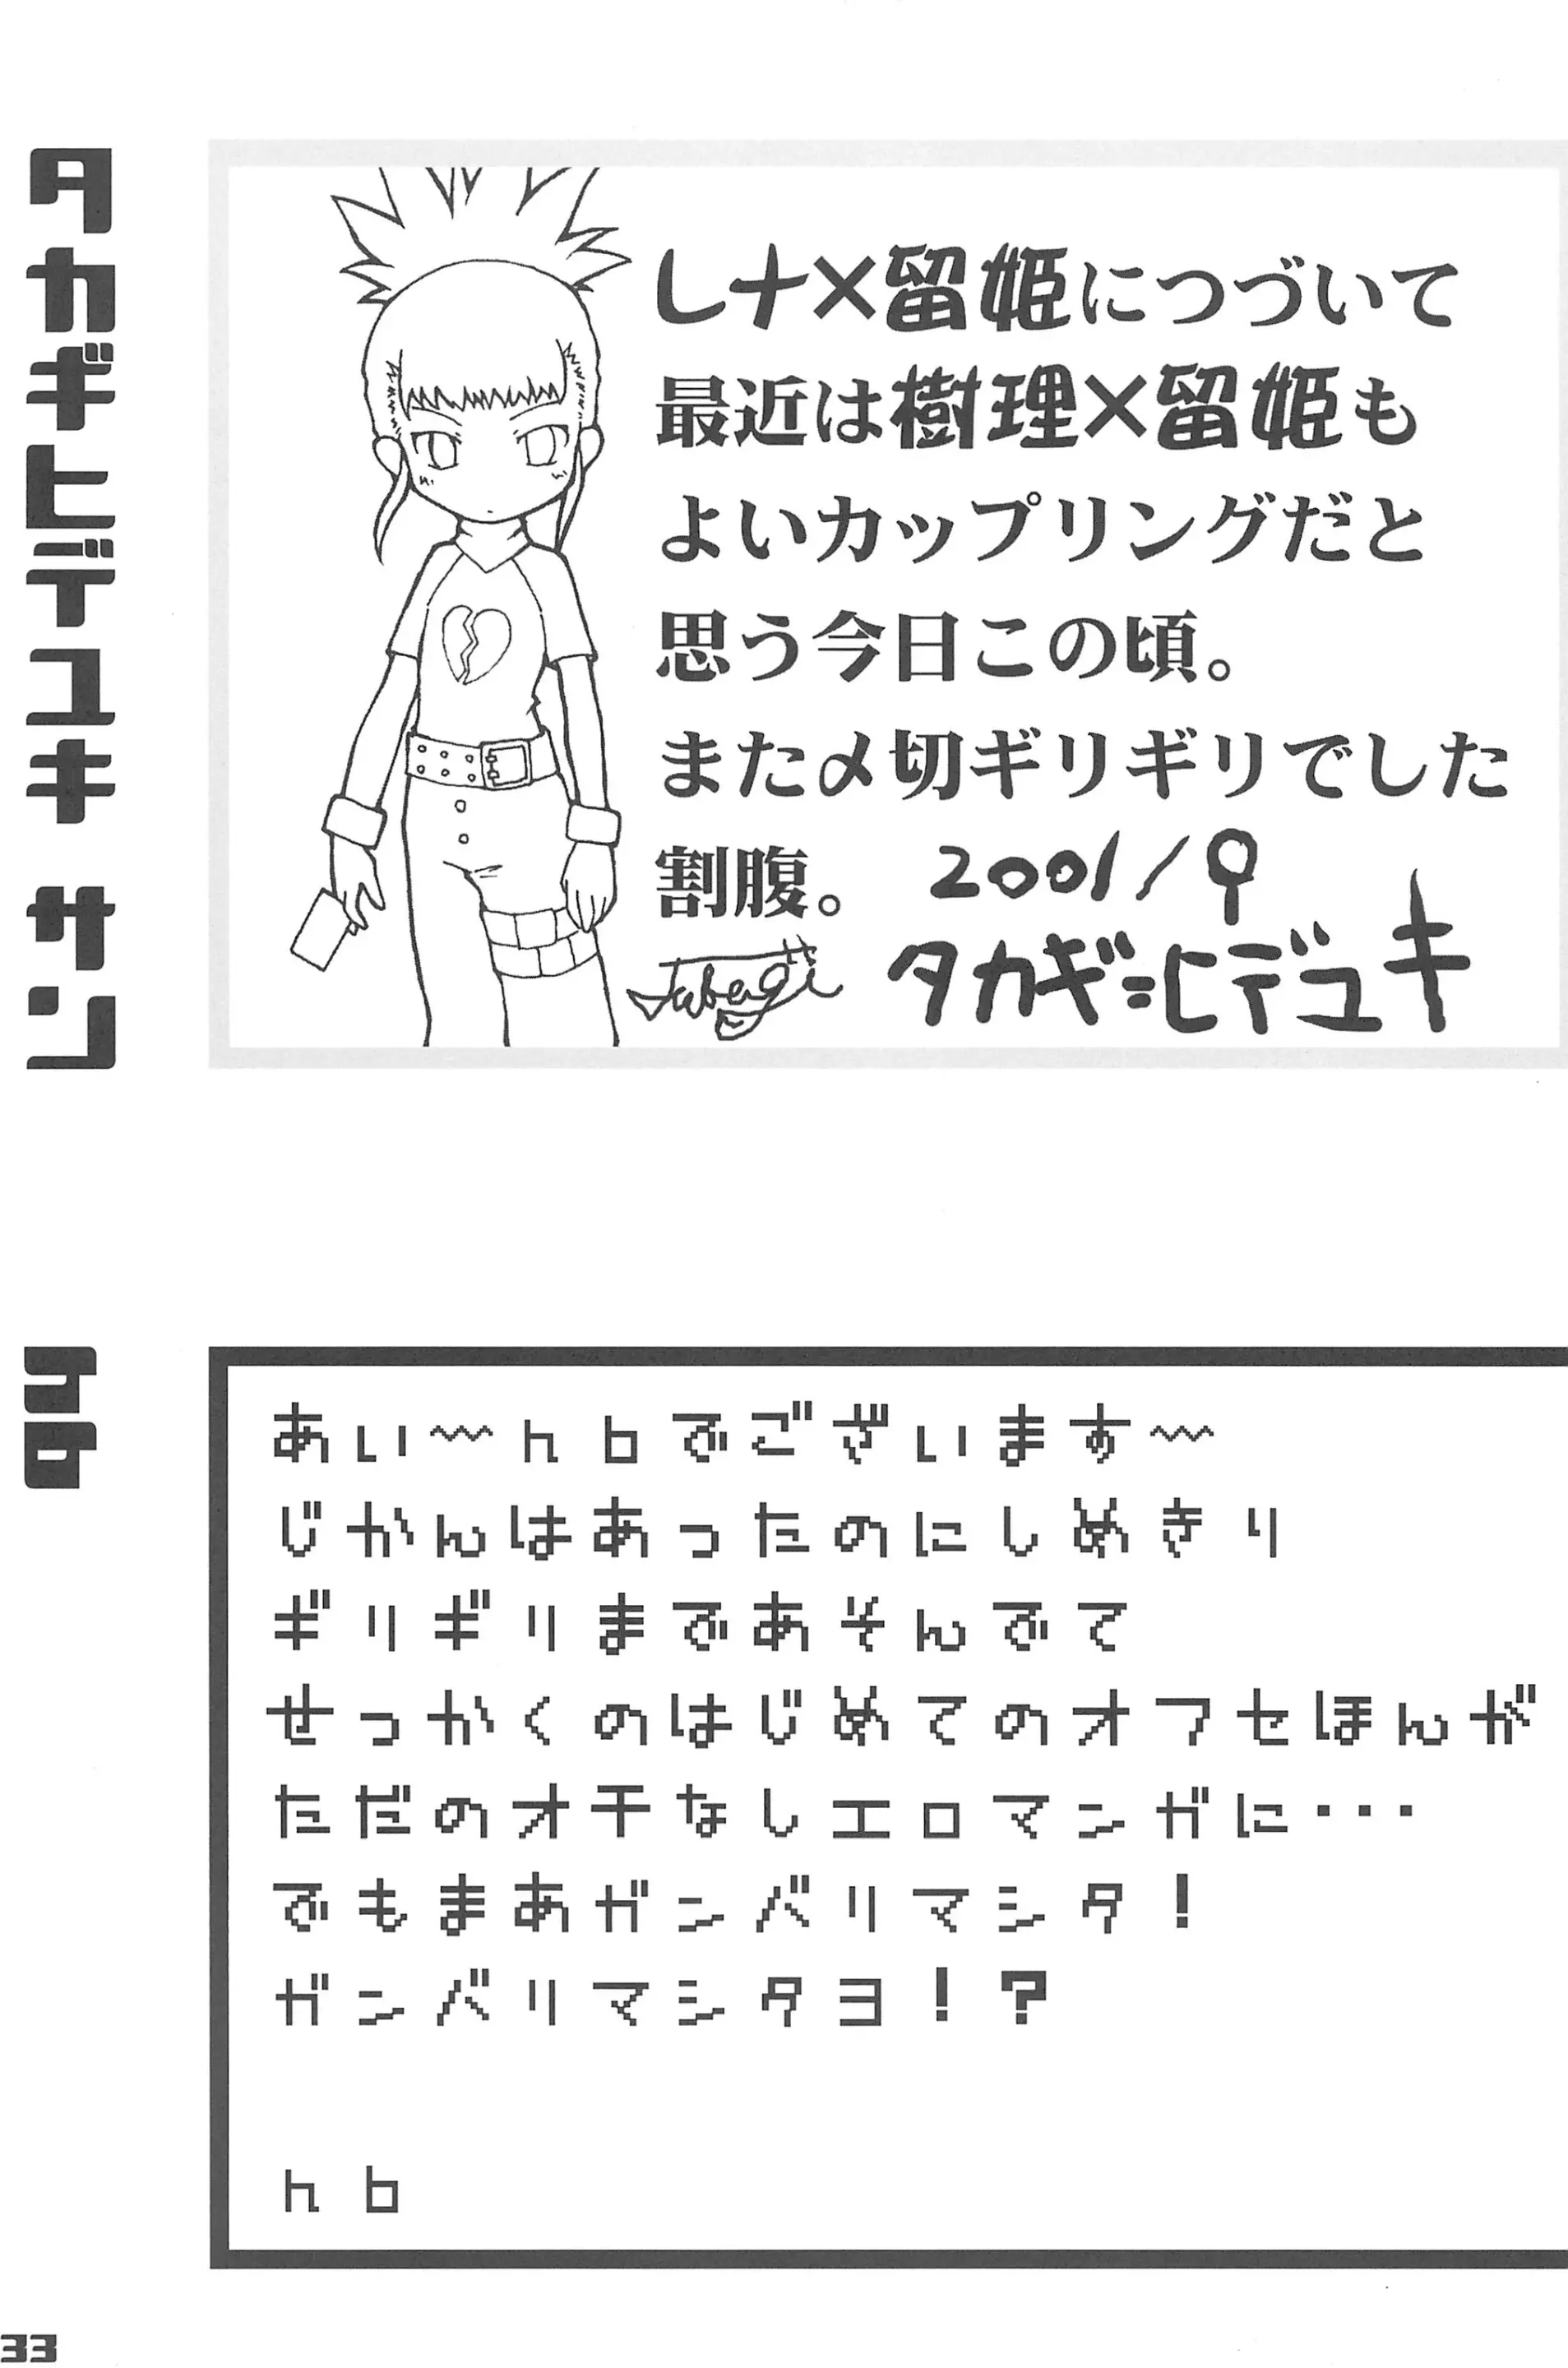 タカギヒデユキ サン
レナ×留姫につづいて
最近は樹理×留姫も
よいカップリングだと
思う今日この頃。
また〆切ギリギリでした
割腹。 2001/♀
タカギ=ヒデユキ
hb
あい〜hbでございます〜
じかんはあったのにしめきり
ギリギリまであそんでて
せっかくのはじめてのオフセほんが
ただのオチなしエロマンガに・・・
でもまあガンバリマシタ!
ガンバリマシタヨ!?
hb
33